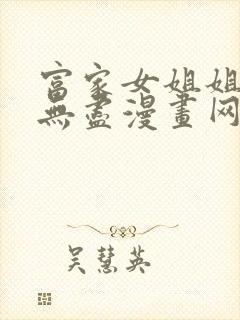 富家女姐姐
無盡漫畫网
吴慧英